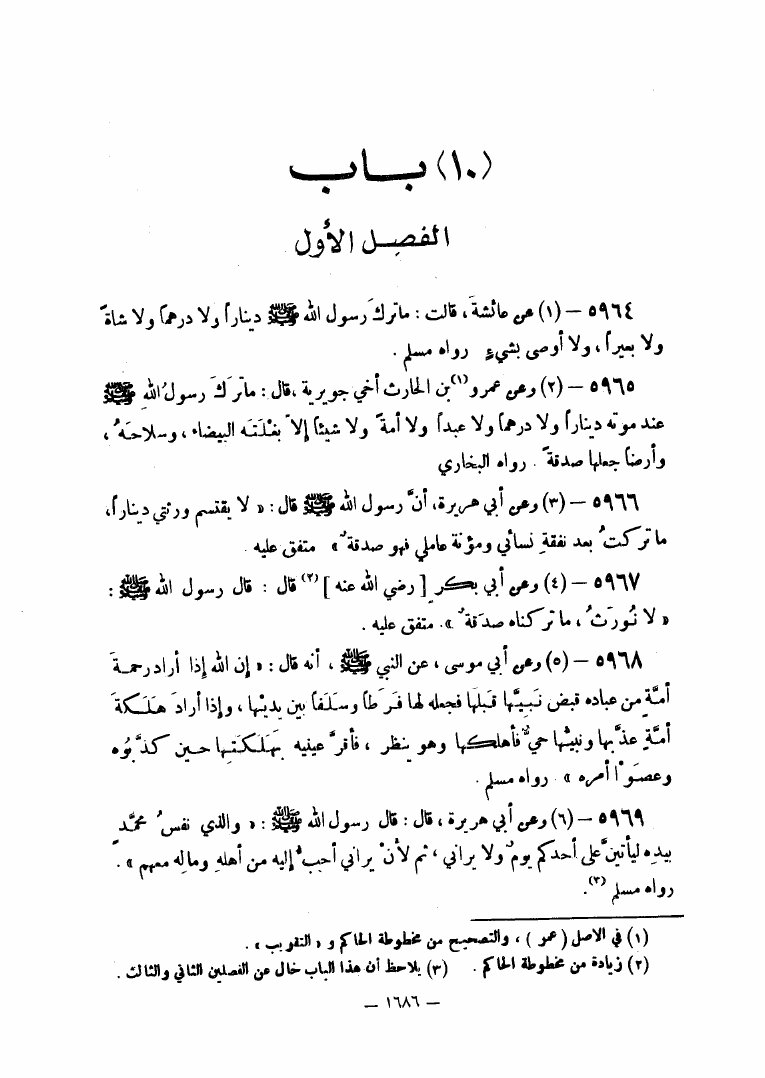 (١٠) بــاب
الفصل الأول
٥٩٦٤ – (١) عن عائشةَ، قالت: ماتركَ رسول الله ﷺ ديناراً ولا درهماً ولا شاةً
ولا بعيراً، ولا أوصى بشيءٍ رواه مسلم.
٥٩٦٥ – (٢) وعن عمرو(١) بن الحارث أخي جويرية، قال: ماتَرَكَ رسولُ اللهِ ﷺ
عند موته ديناراً ولا درهماً ولا عبداً ولا أمةً ولا شيئاً إلاّ بغْلَتَه البيضاء، وسلاحَهُ،
وأرضاً جعلها صدقةً. رواه البخاري
٥٩٦٦ – (٣) وعن أبي هريرة، أنَّ رسول الله ﷺ قال: « لا يقتسم ورثتي ديناراً،
ماتركتُ بعد نفقةِ نسائي ومؤنة عاملي فهو صدقةٌ » متفق عليه.
٥٩٦٧ – (٤) وعن أبي بكرٍ [رضي الله عنه](٢) قال: قال رسول الله ﷺ:
« لا نُورَثُ، ماتركناه صدَقةٌ ». متفق عليه.
٥٩٦٨ – (٥) وعن أبي موسى، عن النبي ﷺ، أنه قال: « إن الله إذا أراد رحمةَ
أمّةٍ من عباده قبض نَبيَّها قبلَها فجعله لها فَرَطاً وسَلَفاً بين يديْها، وإذا أرادَ هَلَكةَ
أمّةٍ عذَّبها ونبيُّها حيٌّ فأهلكها وهو ينظر، فأقرَّ عينيه بهَلَكَتِها حين كذَّبُوه
وعصَوْا أمره ». رواه مسلم.
٥٩٦٩ – (٦) وعن أبي هريرة، قال: قال رسول الله ﷺ: « والذي نفسُ محمَّدٍ
بيدِه ليأتينَّ على أحدكم يومٌ ولا يراني، ثم لأنْ يراني أحبُّ إليه من أهلهِ ومالِه معهم ».
رواه مسلم (٣).
(١) في الاصل (عمر)، والتصحيح من مخطوطة الحاكم و « التقريب ».
(٢) زيادة من مخطوطة الحاكم. (٣) يلاحظ أن هذا الباب خال عن الفصلين الثاني والثالث.
– ١٦٨٦ –